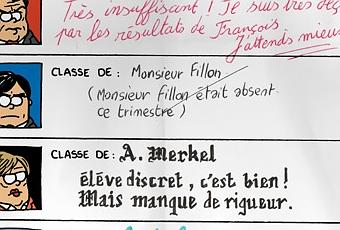 Très insuffisant ! Je suis très déç
par les résultats de François
J'attends mieux
CLASSE DE : Monsieur Fillon
(Monsieur Fillon était absent
ce trimestre)
CLASSE DE : A. Merkel
élève discret, c'est bien !
Mais manque de rigueur.